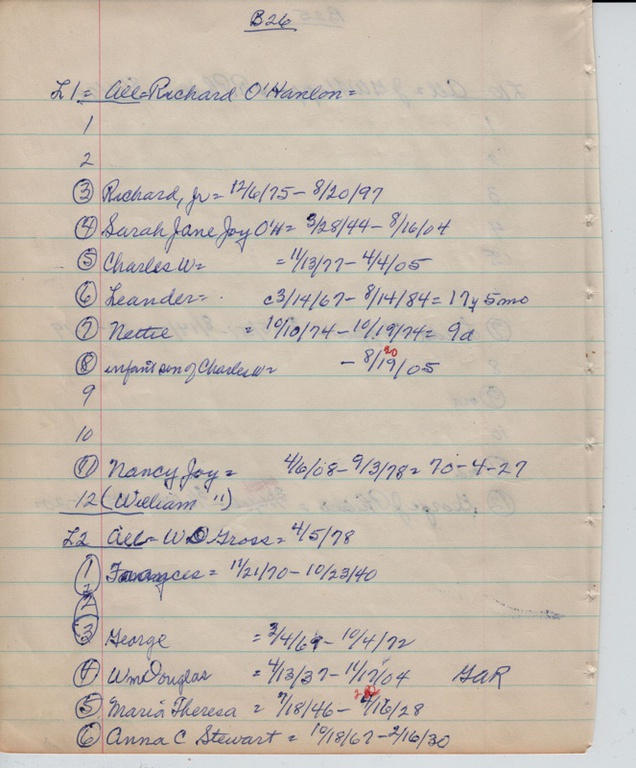 B26
L1 = All = Richard O'Hanlon =
1
2
3 Richard, Jr = 12/6/75 - 8/20/97
4 Sarah Jane Joy O'H = 3/28/44 - 8/16/04
5 Charles W = = 11/13/77 - 4/4/05
6 Leander = c3/14/67 - 8/14/84 = 17y 5mo
7 Nettie = 10/10/74 - 10/19/74 = 9d
8 infant son of Charles W = - 8/19/05 20
9
10
11 Nancy Joy = 4/6/08 - 9/3/78 = 70-4-27
12 (William " ")
L2 All = W D Gross = 4/5/78
1 Frances = 11/21/70 - 10/23/40
2
3 George = 2/4/69 - 10/4/72
4 Wm Douglas = 4/13/37 - 11/17/04 GaR
5 Maria Theresa = 7/18/46 - /16/28
6 Anna C Stewart = 10/18/67 - 2/16/30